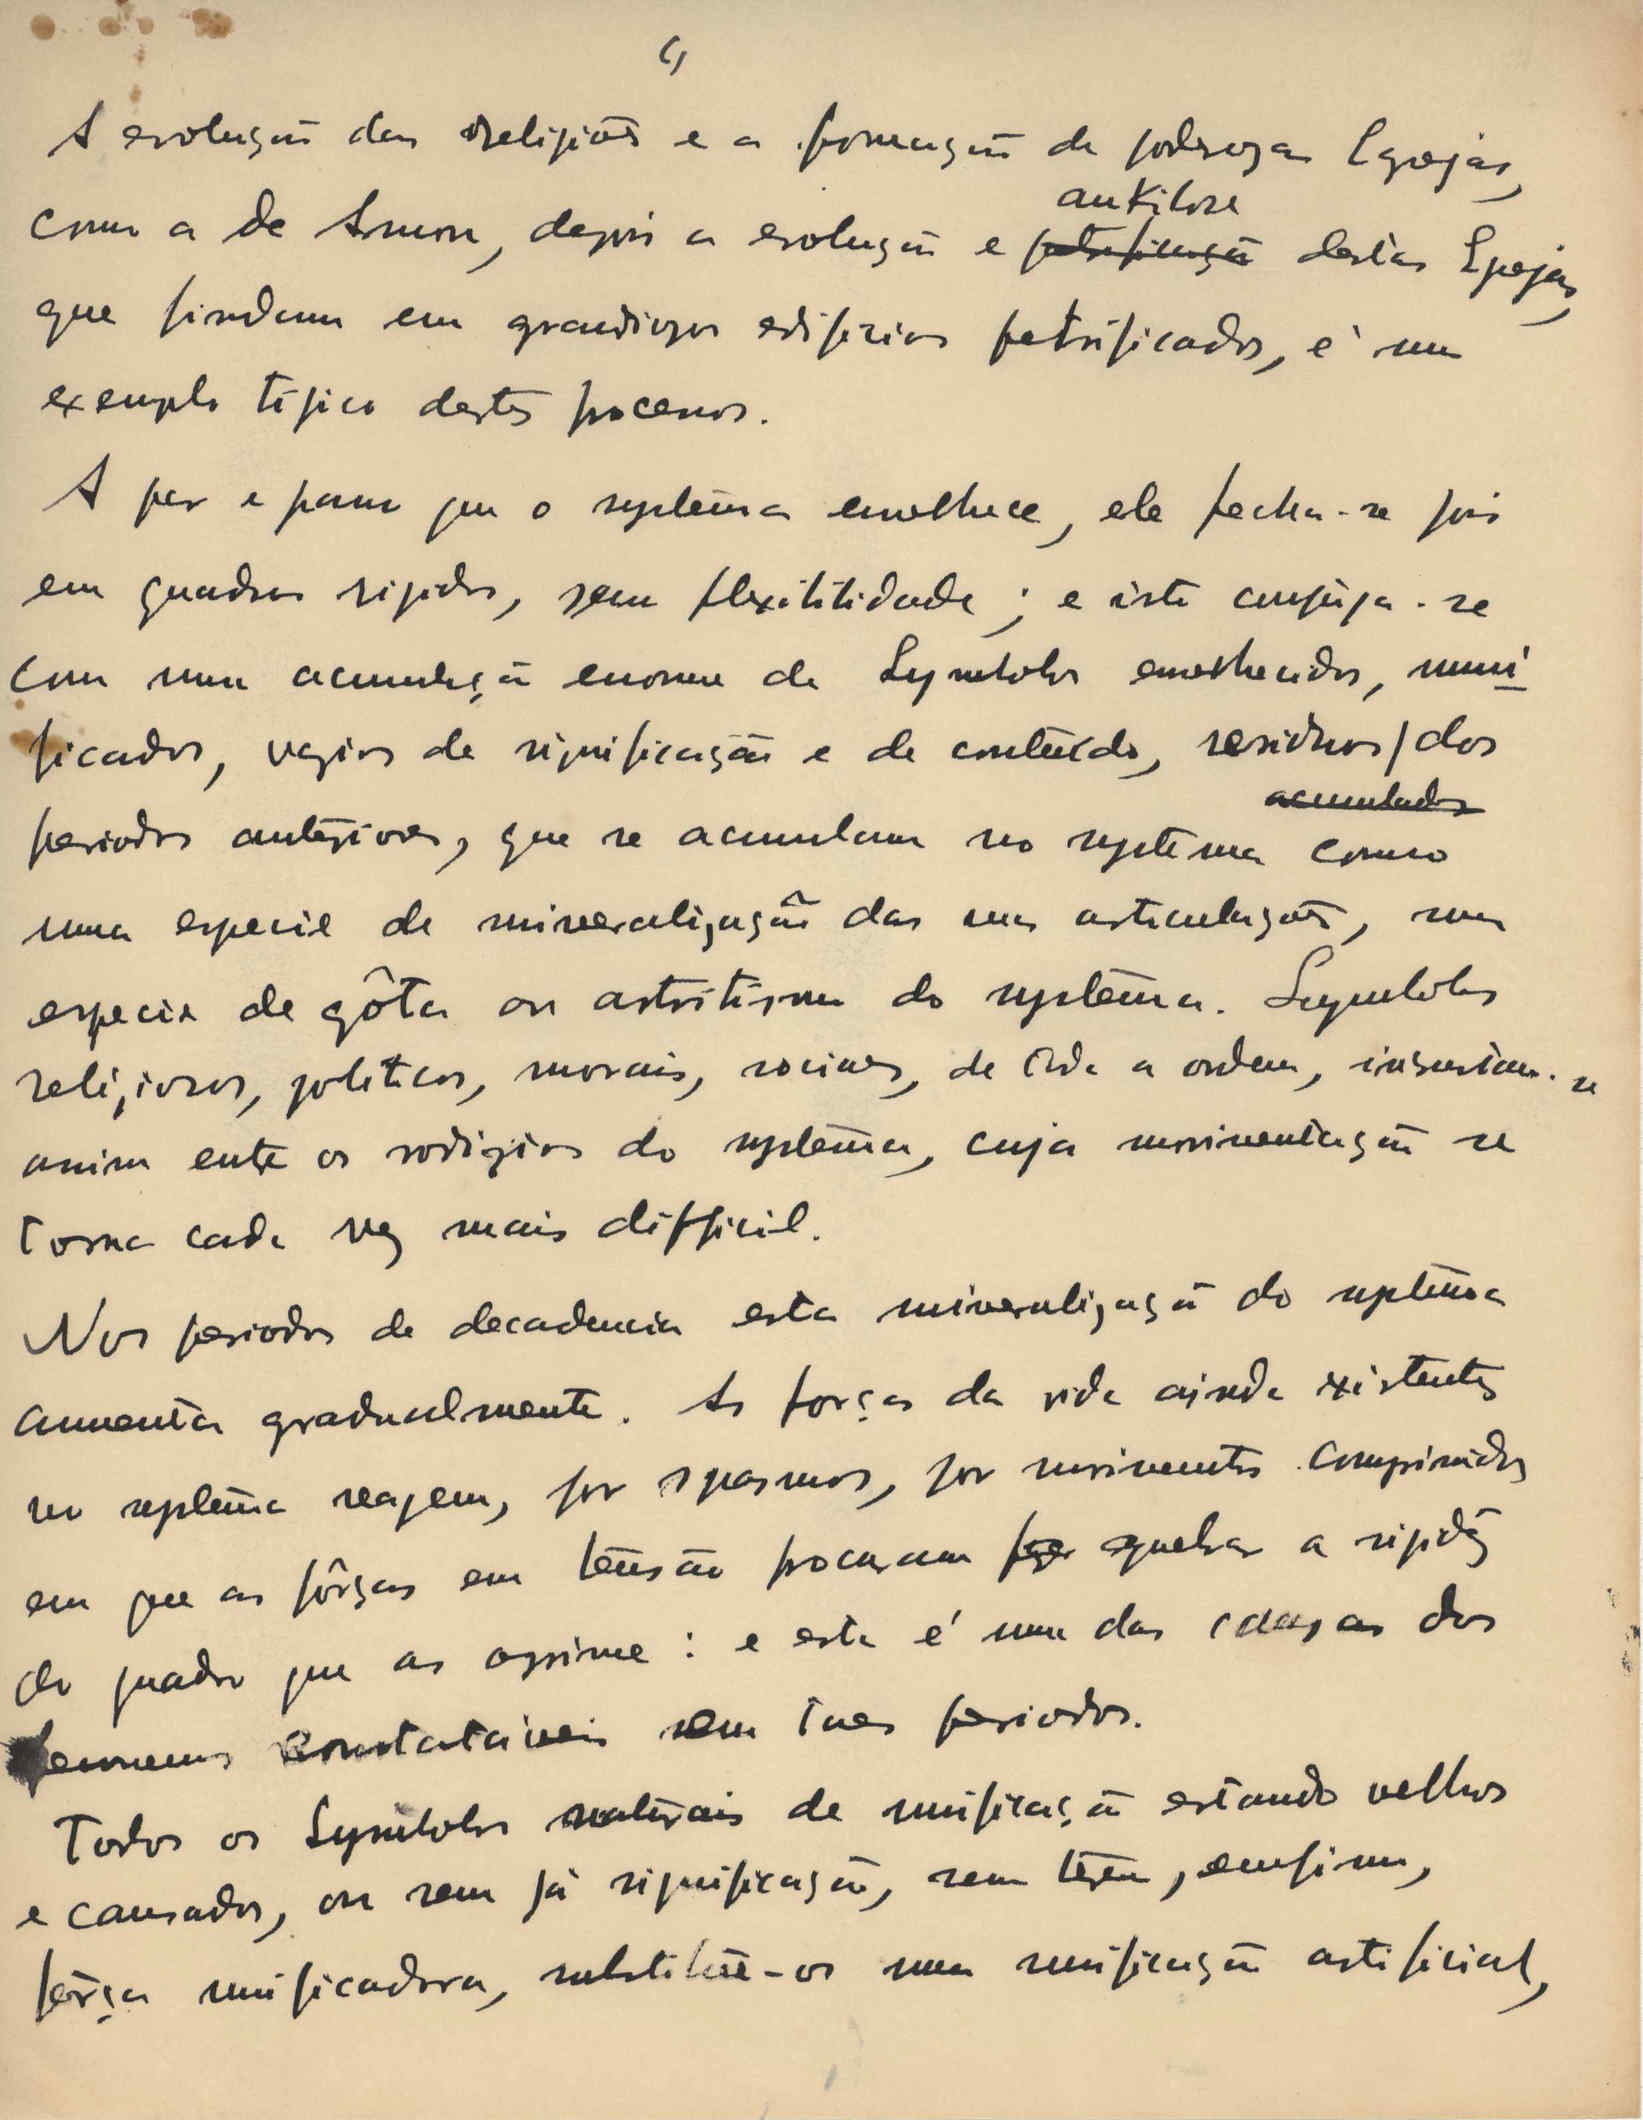 A evolução das religiões e a formação de poderozas Egrejas,
como a de Amon, depois a evolução e petrificação ankilose destas Egrejas,
que findam em grandiozos edificios petrificados, é um
exemplo típico destes processos.
A par e passo que o systema envelhece, ele fecha-se pois
em quadros rigidos, sem flexibilidade; e isto conjuga-se
com uma acumulação enorme de Symbolos envelhecidos, mumi
ficados, vazios de significação e de conteúdo, residuos / dos
acumulados
periodos anteriores, que se acumulam no systema como
uma especie de mineralização das suas articulações, uma
especie de gôta ou artritismo do systema. Symbolos
religiozos, politicos, morais, sociaes, de toda a ordem, incrustam-se
assim entre os rodizios do systema, cuja movimentação se
torna cada vez mais difficil.
Nos periodos de decadencia esta mineralização do systema
aumenta gradualmente. As forças da vida ainda existentes
no systema reagem, por spasmos, por movimentos comprimidos
em que as fôrças em tensão procuram quebrar a rigidez
do quadro que as oprime: e esta é uma das cauzas dos
fenomenos constataveis em taes periodos.
Todos os Symbolos naturais de unificação estando velhos
e cansados, ou sem já significação, sem terem, emfim,
fôrça unificadora, substitue-os uma unificação artificial,